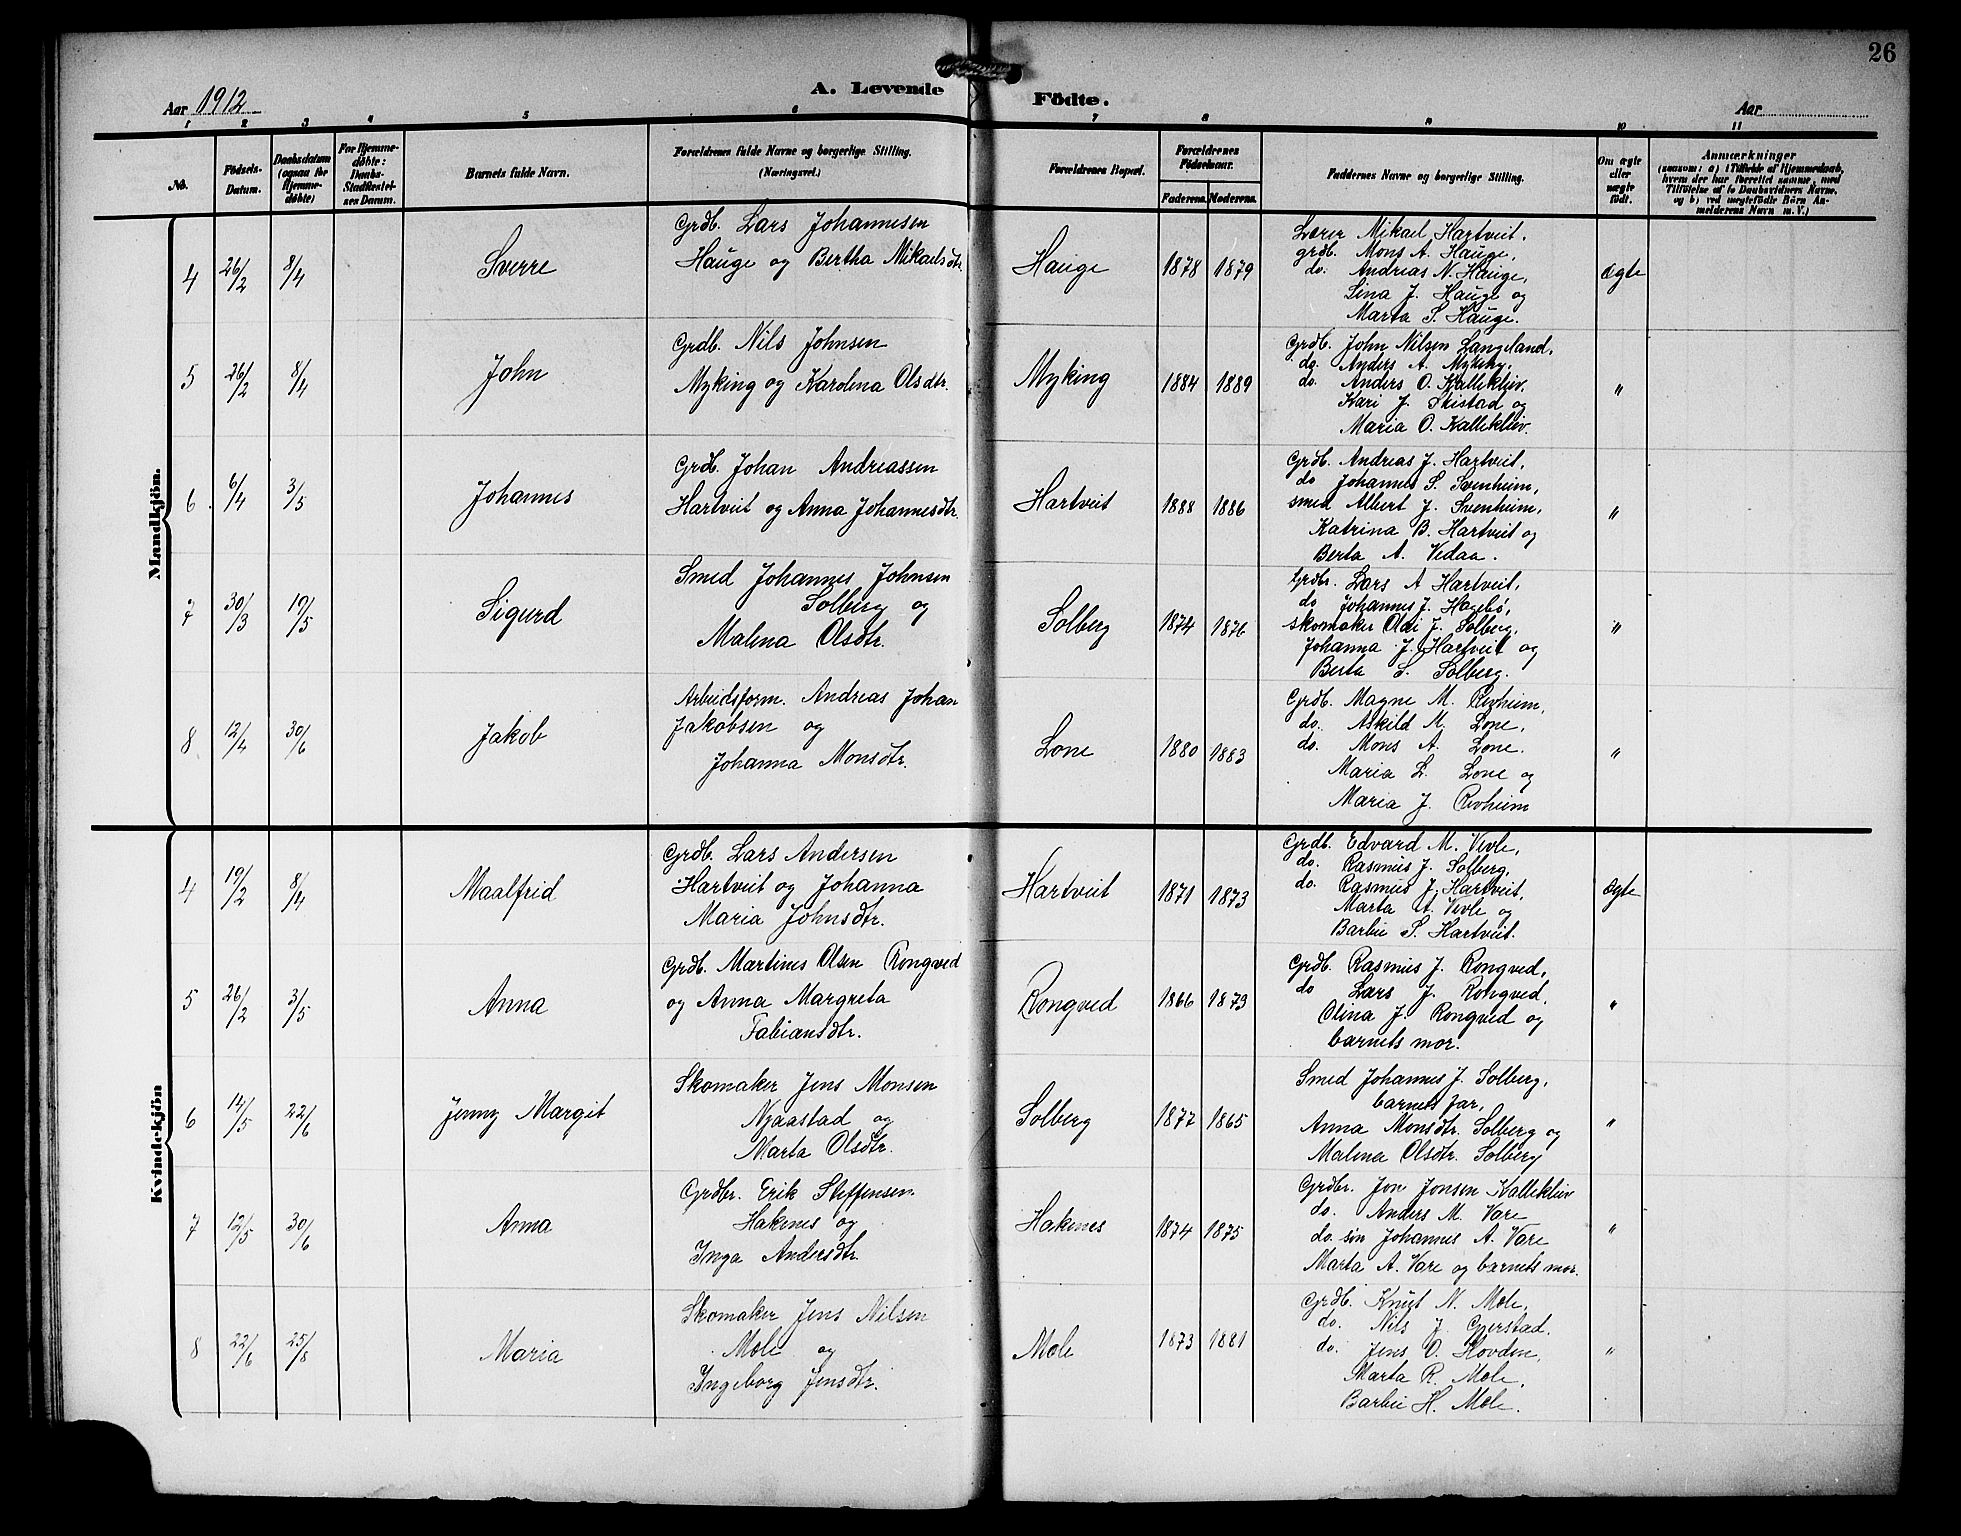 26
A. Levende Födte.
Aar 1912
Aar
1 2 3 4 5 6 7 8 9 10 11
No.
Födsels-Datum.
Daabsdatum (ogsaa för Hjemme-döbte)
For Hjemme-döbte: Daabs-Stadfestel-ses Datum.
Barnets fulde Navn.
Forældrenes fulde Navne og borgerlige Stilling.
(Næringsvei.)
Forældrenes Bopæl.
Forældrenes Födselsaar.
Faderens. Moderens.
Faddernes Navne og borgerlige Stilling.
Om ægte eller uægte födt.
Anmærkninger
(saasom: a) i Tilfælde af Hjemmedaab,
hvem der har forrettet samme, med
Tilföielse af to Daabsvidners Navne,
og b) ved uægtefödte Börn An-
melderens Navn m. V.)
Mandkjön.
4 26/2 8/4 Sverre
Grdb. Lars Johannesen
Hauge og Bertha Mikaelsdtr.
Hauge 1878 1879
Lærer Mikael Hartveit,
grdb. Mons A. Hauge,
do. Andreas N. Hauge,
Lina J. Hauge og
Marta S. Hauge.
ægte
5 26/2 8/4 John
Grdb. Nils Johnsen
Myking og Karolina Olsdtr.
Myking 1884 1889
Grdb. John Nilsen Langeland,
do. Anders A. Myking,
do. Anders O. Kallekleiv.
Kari J. Skistad og
Maria O. Kallekleiv.
"
6 6/4 3/5 Johannes
Grdb. Johan Andreassen
Hartveit og Anna Johannesdtr.
Hartveit 1888 1886
Grdb. Andreas J. Hartveit,
do Johannes S. Svenheim,
smed Albert J. Svenheim,
Katrina B. Hartveit og
Berta A. Vedaa.
"
7 30/3 19/5 Sigurd
Smed Johannes Johnsen
Solberg og
Malena Olsdtr.
Solberg 1874 1876
Grdbr. Lars A Hartveit,
do Johannes J. Hagebö,
skomaker Olai J. Solberg,
Johanna J. Hartveit og
Berta S. Solberg.
"
8 12/4 30/6 Jakob
Arbeidsform. Andreas Johan
Jakobsen og
Johanna Monsdtr.
Lone 1880 1883
Grdb. Magne M. Revheim,
do. Askild M. Lone,
do. Mons A. Lone.
Maria L. Lone og
Maria J. Revheim
"
Kvindekjön
4 19/2 8/4 Maalfrid
Grdb. Lars Andersen
Hartveit og Johanna
Maria Johnsdtr.
Hartveit 1871 1873
Grdb. Edvard M. Vevle,
do. Rasmus J. Solberg,
do. Rasmus J. Hartveit,
Marta A. Vevle og
Barbu S. Hartveit.
ægte
5 26/2 3/5 Anna
Grdb. Martines Olsen Rongved
og Anna Margreta
Fabiansdtr.
Rongved 1866 1873
Grdb. Rasmus J. Rongved,
do Lars J. Rongved,
Olina J. Rongved og
barnets mor.
"
6 14/5 22/6 Jenny Margit
Skomaker Jens Monsen
Njaastad og
Marta Olsdtr.
Solberg 1877 1865
Smed Johannes J. Solberg,
barnets far,
Anna Monsdtr. Solberg og
Malena Olsdtr. Solberg
"
7 12/5 30/6 Anna
Grdbr. Erik Steffensen
Hakenes og
Inga Andersdtr.
Hakenes 1874 1875
Grdbr. Jon Jonsen Kallekleiv
do. Anders M. Vare
do. sön Johannes A. Vare
Marta A. Vare og barnets mor.
"
8 22/6 25/8 Maria
Skomaker Jens Nilsen
Mæle og
Ingeborg Jensdtr.
Mæle 1873 1881
Grdb. Knut N. Mæle,
do. Nils J. Gjerstad.
do. Jens O. Hovden,
Marta R. Mæle,
Barbu H. Mæle.
"